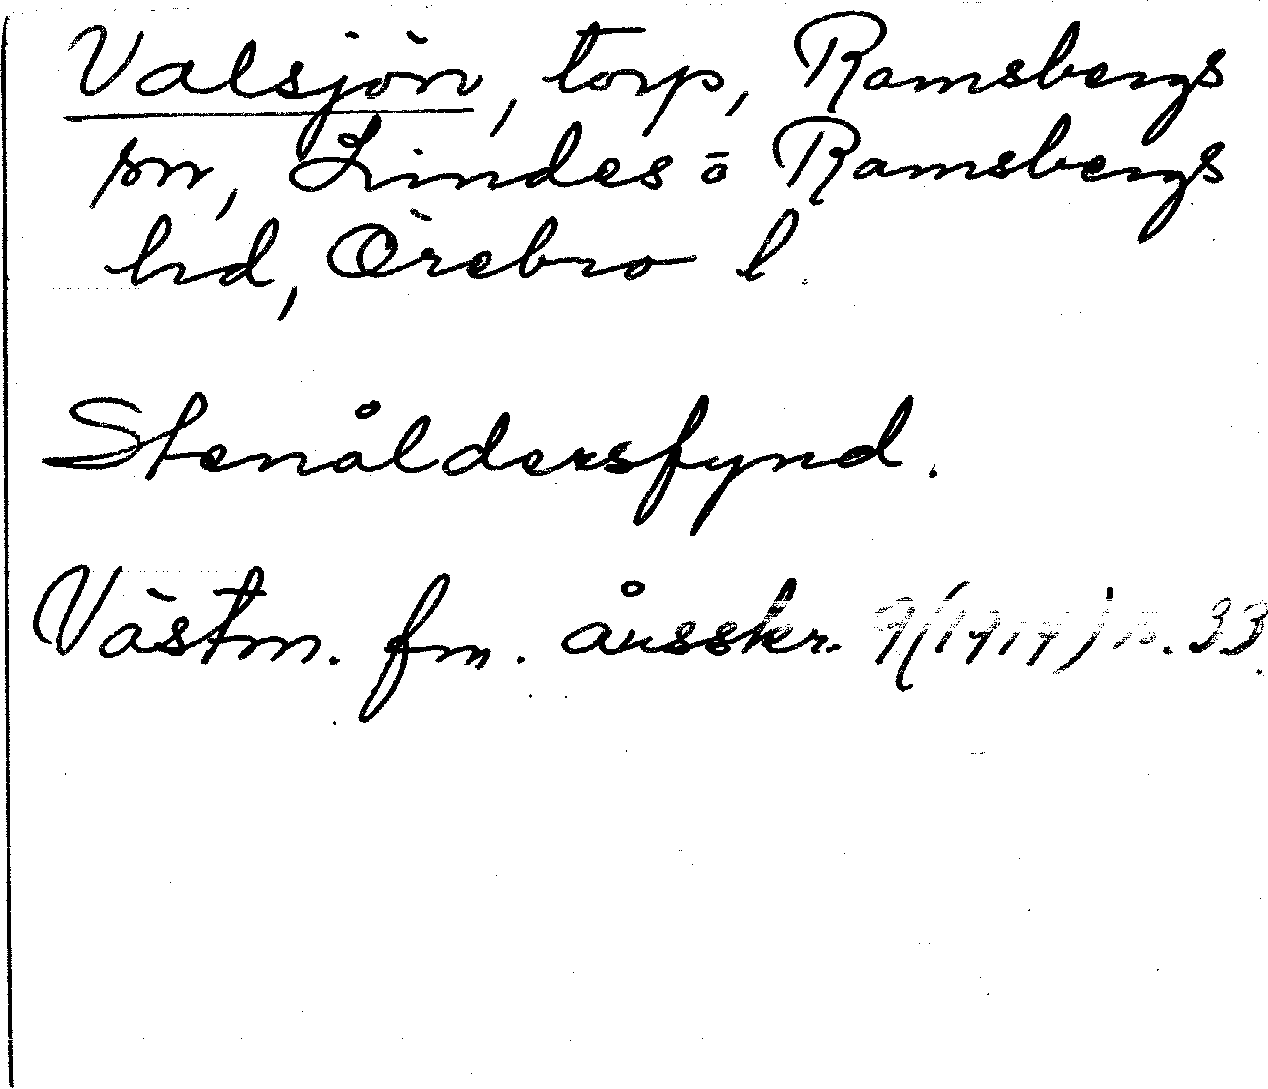 Valsjön, torp, Ramsbergs
sn, Lindes o Ramsbergs
hd, Örebro l.
Stenåldersfynd.
Västm. fm. årsskr. 33